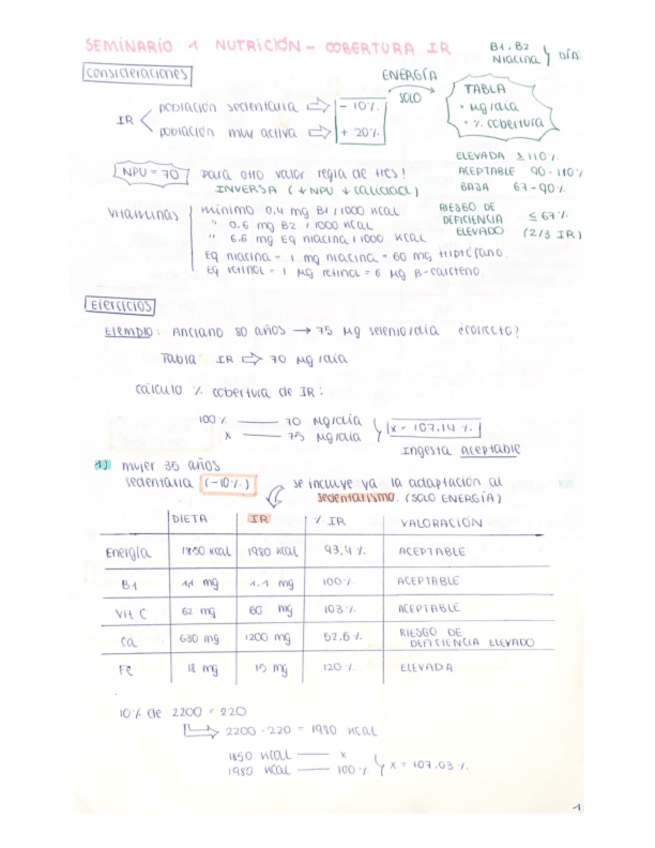 SEMINARIO 1 NUTRICIÓN - COBERTURA IR
B1, B2
NIACINA } DÍA
Consideraciones
ENERGÍA
SOLO
TABLA
• µg/día
• % cobertura
IR < población sedentaria ⇒ - 10%
población muy activa ⇒ + 20%
ELEVADA ≥ 110%
ACEPTABLE 90 - 110%
BAJA 67 - 90%
RIESGO DE DEFICIENCIA ELEVADO ≤ 67% (2/3 IR)
NPU = 70 para otro valor regla de tres!
INVERSA (↓ NPU ↓ calidad)
Vitaminas
mínimo 0,4 mg B1 / 1000 kcal
" 0.6 mg B2 / 1000 kcal
" 6.6 mg Eq niacina / 1000 kcal
Eq niacina = 1 mg niacina = 60 mg triptófano.
Eq retinol = 1 µg retinol = 6 µg B-caroteno.
Ejercicios
EJEMPLO: Anciano 80 años → 75 µg selenio/día ¿correcto?
Tabla IR ⇒ 70 µg/día
Cálculo % cobertura de IR:
100% — 70 µg/día
x — 75 µg/día } x = 107.14%
Ingesta aceptable
1) mujer 35 años
sedentaria (-10%)
se incluye ya la adaptación al
sedentarismo. (SOLO ENERGÍA)
DIETA IR % IR VALORACIÓN
Energía 1850 kcal 1980 kcal 93,4% ACEPTABLE
B1 1,1 mg 1,1 mg 100% ACEPTABLE
Vit C 62 mg 60 mg 103% ACEPTABLE
Ca 630 mg 1200 mg 52.5% RIESGO DE DEFICIENCIA ELEVADO
Fe 18 mg 15 mg 120% ELEVADA
10% de 2200 = 220
2200 - 220 = 1980 kcal
1850 kcal — x
1980 kcal — 100% } x = 107.03%
1